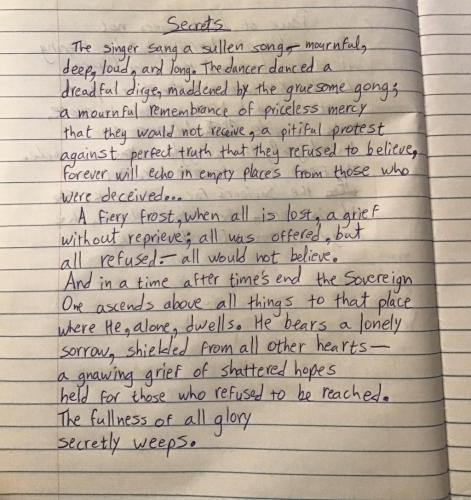 Secrets
The singer sang a sullen song— mournful,
deep, loud, and long. The dancer danced a
dreadful dirge, maddened by the gruesome gong;
a mournful remembrance of priceless mercy
that they would not receive, a pitiful protest
against perfect truth that they refused to believe,
forever will echo in empty places from those who
were deceived...
A fiery frost, when all is lost, a grief
without reprieve; all was offered, but
all refused— all would not believe.
And in a time after time's end the Sovereign
One ascends above all things to that place
where He, alone, dwells. He bears a lonely
sorrow, shielded from all other hearts—
a gnawing grief of shattered hopes
held for those who refused to be reached.
The fullness of all glory
secretly weeps.